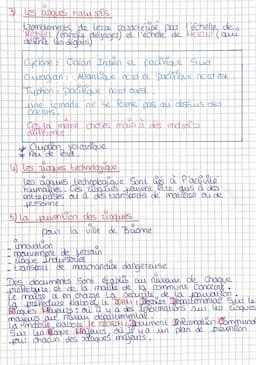 3) Les risques naturels
Tremblements de terre caractérisé par l'échelle de
Richter (énergie dégagée) et l'échelle de Mercalli (qui
décrit les dégâts)
Cyclone : Océan Indien et pacifique Sud
Ouragan : Atlantique nord et pacifique nord est
Typhon : pacifique nord ouest
une tornade ne se forme pas au dessus des
océans.
Cas la même choses mais a des endroits
différents.
* Éruption volcanique
* Feu de forêt.
4) Les risques technologique
Les risques technologique sont liés à l'activité
humaines. Ces risques peuvent être dus à des
entreprises ou à des transports de matières ou de
personne.
5) La prévention des risques
pour la ville de
- innovation
- mouvement de terrain
- risque industriel
- transport de marchandise dangereuse
Des documents sont établis au niveau de chaque
préfecture et de la mairie de la commune concerné.
Le maire a en charge la sécurité de la population
La préfecture élabore le DDRM : Dossier Départemental Sur les
Risques Majeurs : où il y a des informations sur les risques
majeurs au niveau départemental.
La mairie élabore le DICRIM : Document Information Communal
Sur les Risque Majeurs, où il y a un plan de prévention
pour chacun des risques majeurs.